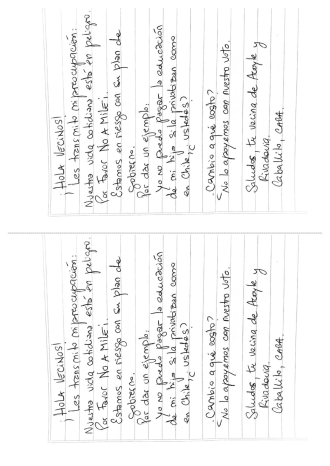 ¡HOLA VECINOS!
Les transmito mi preocupación:
Nuestra vida cotidiana está en peligro.
Por Favor NO A MILEI.
Estamos en riesgo con su plan de
Gobierno.
Por dar un ejemplo:
Yo no puedo pagar la educación
de mi hijo si la privatizan como
en Chile, ¿ustedes?
¿Cambio a qué costo?
No lo apoyemos con nuestro voto.
Saludos, tu vecina de Acoyte y
Rivadavia.
Caballito, CABA.
¡HOLA VECINOS!
Les transmito mi preocupación:
Nuestra vida cotidiana está en peligro.
Por Favor NO A MILEI.
Estamos en riesgo con su plan de
Gobierno.
Por dar un ejemplo:
Yo no puedo pagar la educación
de mi hijo si la privatizan como
en Chile, ¿ustedes?
¿Cambio a qué costo?
No lo apoyemos con nuestro voto.
Saludos, tu vecina de Acoyte y
Rivadavia.
Caballito, CABA.